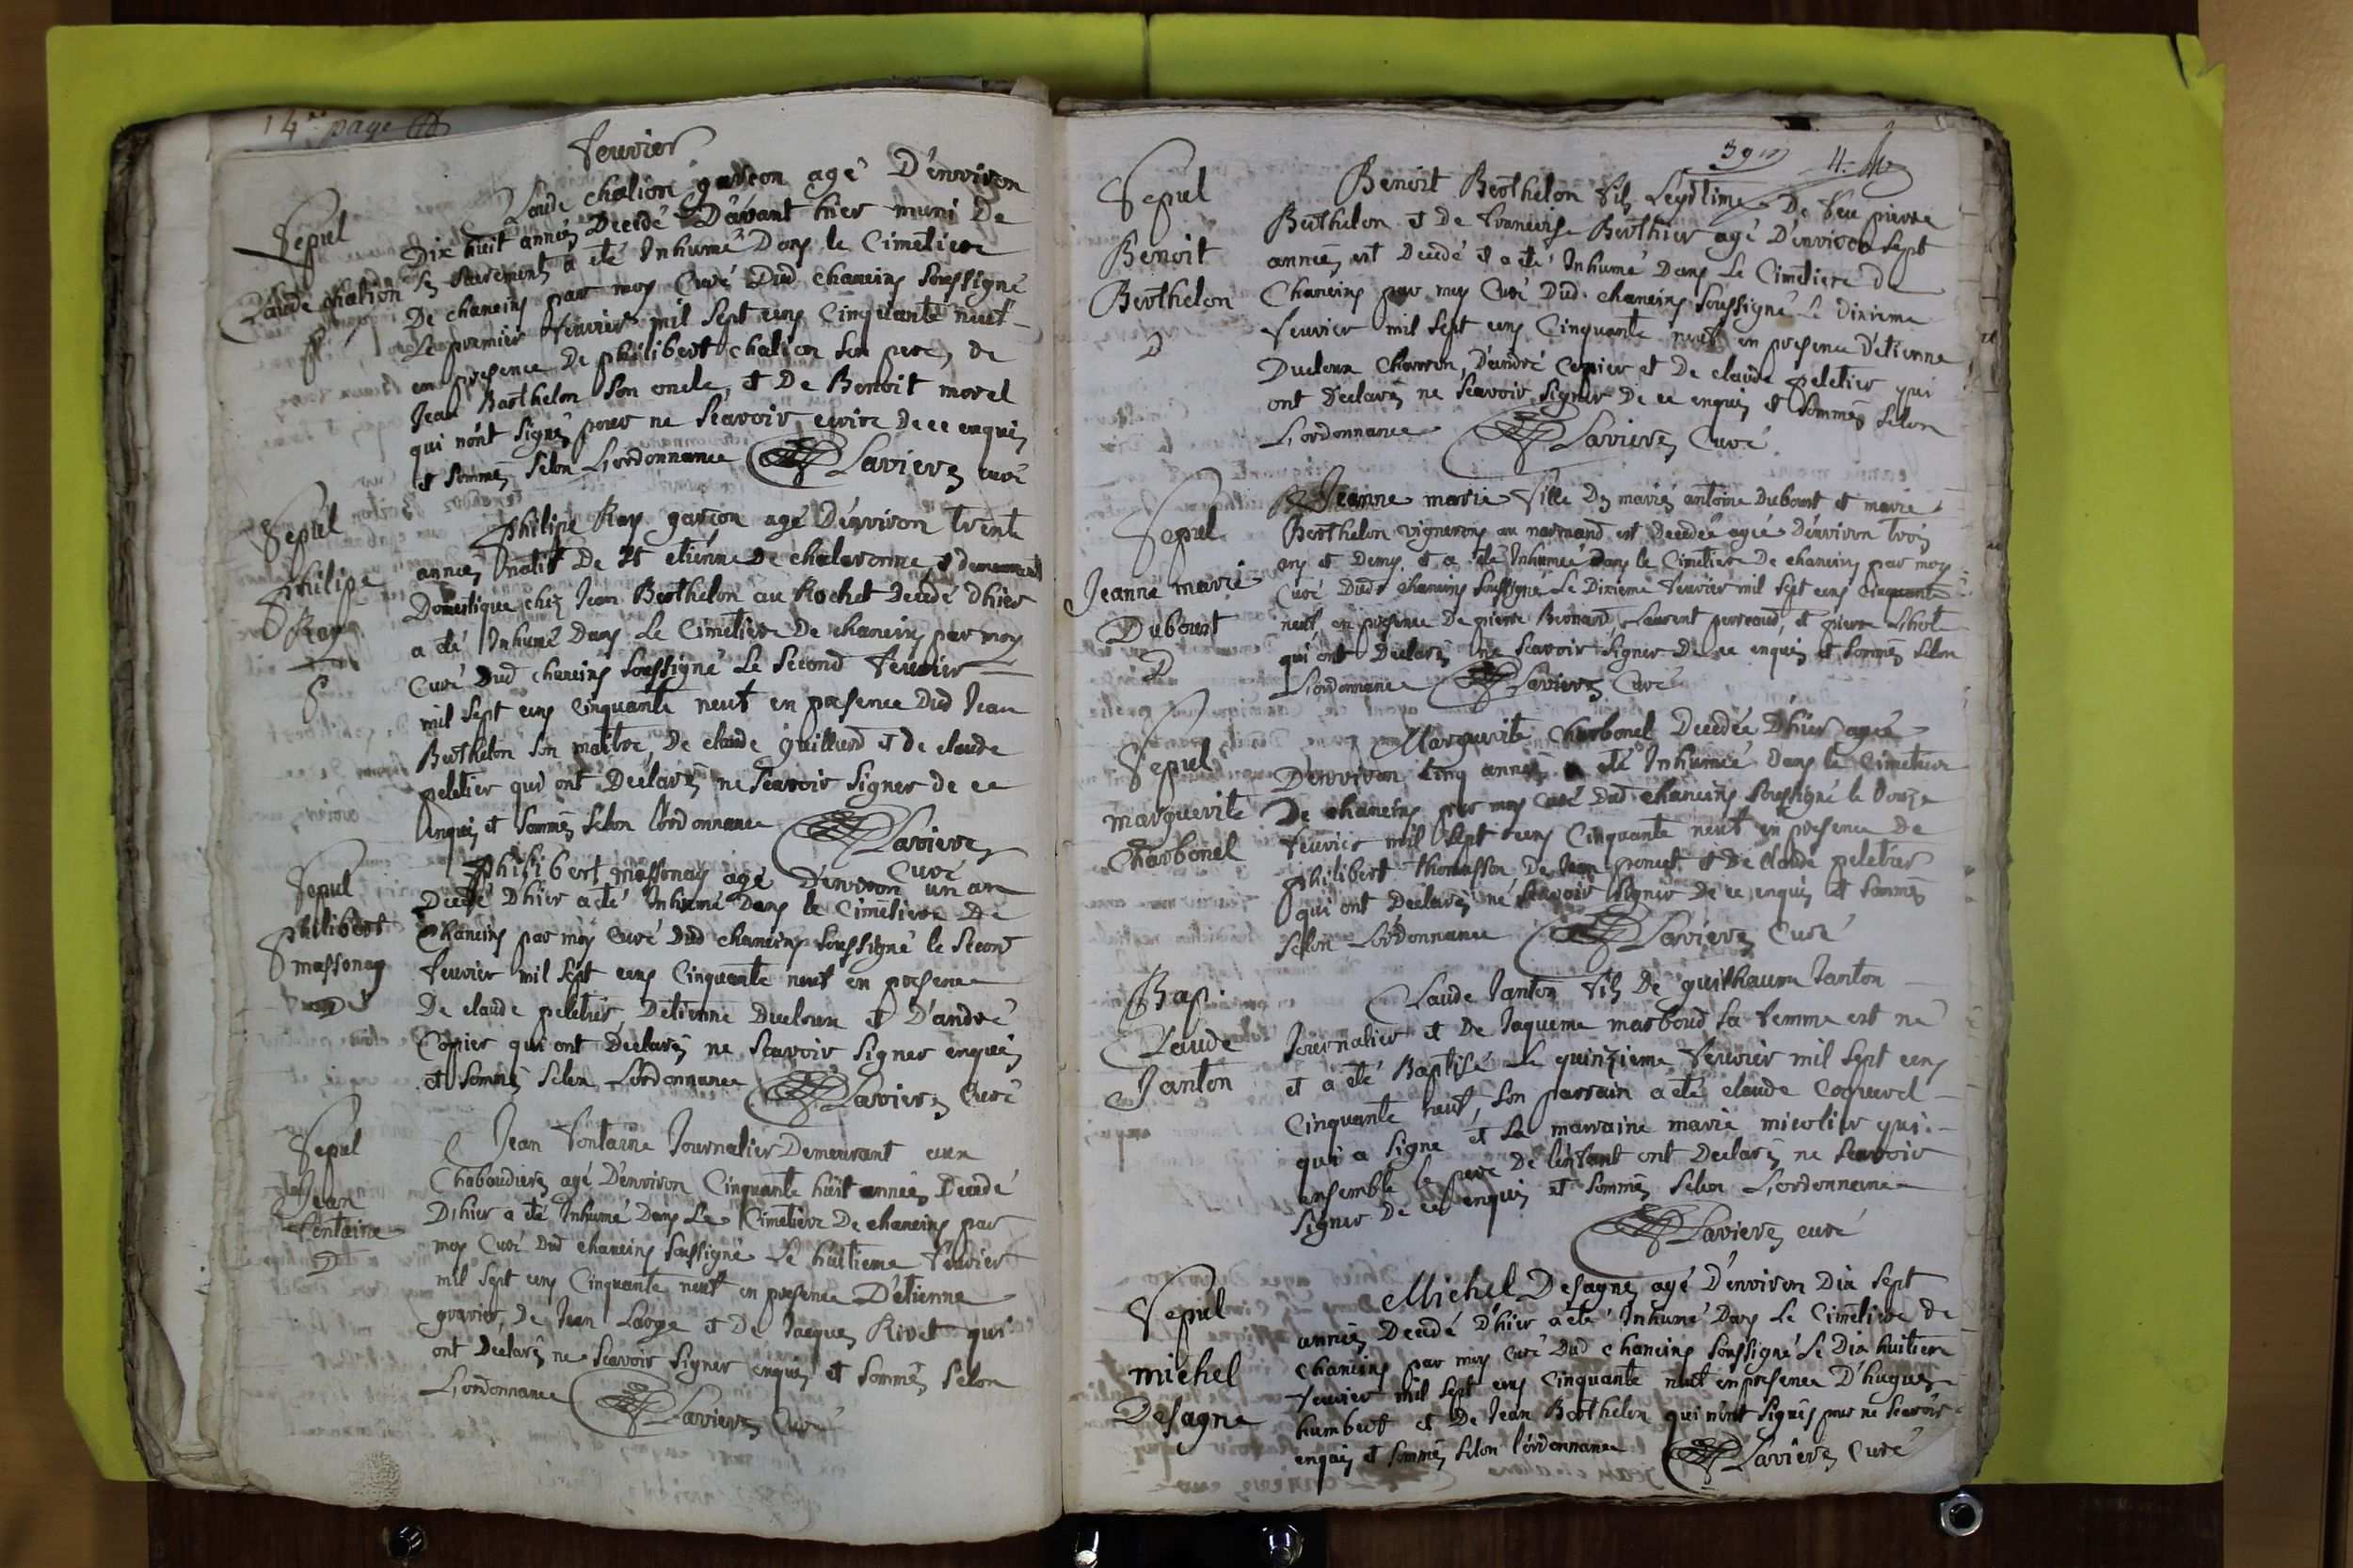 14.e page
Feuvier
Sepul
Claude chalion
Claude chalion garcon agé D'environ
Dix huit années Decedé D'avant hier muni De
Ses Sacrements a eté Inhumé Dans le Cimetiere
De chaneins par moy Curé Dud chaneins soussigné
Le premier feuvier mil sept cens Cinquante neuf
en presence De philibert chalion son pere, de
Jean Barthelon son oncle, et De Benoit morel
qui n'ont signés pour ne sçavoir ecrire de ce enquis
et sommés selon L'ordonnance Lavieres curé
Sepul
philipe
Ray
philipe Ray garcon agé D'environ trente
années natif De St etiénne De chalaronne, et demeurant
Domestique chez Jean Berthelon au Rochet decedé d'hier
a eté Inhumé Dans Le Cimetiere De chaneins par moy
Curé Dud chaneins soussigné Le second feuvier
mil sept cens Cinquante neuf en presence Dud Jean
Berthelon son maitre, De claude guillard et de claude
peletier qui ont Declarés ne sçavoir signer de ce
enquis et sommés selon l'ordonnance Lavieres
Curé
Sepul
philibert
massonay
D
philibert massonay agé D'environ un an
Decedé D'hier a eté Inhumé Dans le Cimetiere De
Chaneins par moy Curé Dud chaneins soussigné le second
feuvier mil sept cens Cinquante neuf en presence
De claude peletier, D'etienne Ducloux et D'andré
Copier qui ont Declarés ne sçavoir signer enquis
et sommés selon L'ordonnance Lavieres Curé
Sepul
Jean
fontaine
D
Jean fontaine Journalier Demeurant aux
Chabaudieres agé D'environ Cinquante huit années Decedé
D'hier a eté Inhumé Dans Le Cimetiere De chaneins par
moy Curé Dud chaneins soussigné Le huitieme feuvier
mil sept cens Cinquante neuf en presence D'etienne
gravier, De Jean Large et De Jacques Rivet qui
ont Declarés ne sçavoir signer enquis et sommés selon
L'ordonnance Lavieres Curé
39
4.
Sepul
Benoit
Berthelon
D
Benoit Berthelon fils Legitime De feu pierre
Berthelon et De francoise Berthier agé D'environ sept
années est Decedé et a eté Inhumé Dans Le Cimetiere de
Chaneins par moy Curé Dud chaneins soussigné Le Dixieme
feuvier mil sept cens Cinquante neuf en presence D'etienne
Ducloux Charron, D'andré Copier et De claude peletier qui
ont Declarés ne sçavoir signer De ce enquis et sommés selon
L'ordonnance Lavieres Curé
Sepul
Jeanne marie
Dubourt
D
Jeanne marie fille Des mariés antoine Dubourt et marie
Berthelon vignerons au normand est Decedée agée D'environ trois
ans et Demy et a eté Inhumée Dans le Cimetiere De chaneins par moy
Curé Dud chaneins soussigné Le Dixieme feuvier mil sept cens cinquante
neuf, en presence De pierre Bernard, Laurent perreaud, et pierre Lihot
qui ont Declarés ne sçavoir signer De ce enquis et sommés selon
L'ordonnance Lavieres Curé
Sepul
marguerite
Charbonel
Marguerite Charbonel Decedée D'hier agée
D'environ Cinq années a eté Inhumée Dans le Cimetiere
De chaneins par moy Curé Dud chaneins soussigné le Douze
feuvier mil sept cens Cinquante neuf en presence de
philibert thomasson De Jean poncet et De claude peletier
qui ont Declarés ne sçavoir signer De ce enquis et sommés
selon L'ordonnance Lavieres Curé
Bap.
Claude
Janton
Claude Janton fils De guilhaume Janton
Journalier et De Jaqueme marboud sa femme est né
et a eté Baptisé Le quinzieme feuvier mil sept cens
Cinquante neuf, son parrain a eté claude Coquard
qui a signé et La marraine marie micolier qui
ensemble le pere De l'enfant ont Declarés ne sçavoir
signer De ce enquis et sommés selon L'ordonnance
Lavieres curé
Sepul
michel
Desagne
Michel Desagne agé D'environ Dix sept
années Decedé D'hier a eté Inhumé Dans Le Cimetiere de
chaneins par moy Curé Dud chaneins soussigné Le Dix huitieme
feuvier mil sept cens Cinquante neuf en presence D'hugues
humbert et De Jean Berthelon qui n'ont signés pour ne sçavoir
enquis et sommés selon l'ordonnance Lavieres Curé